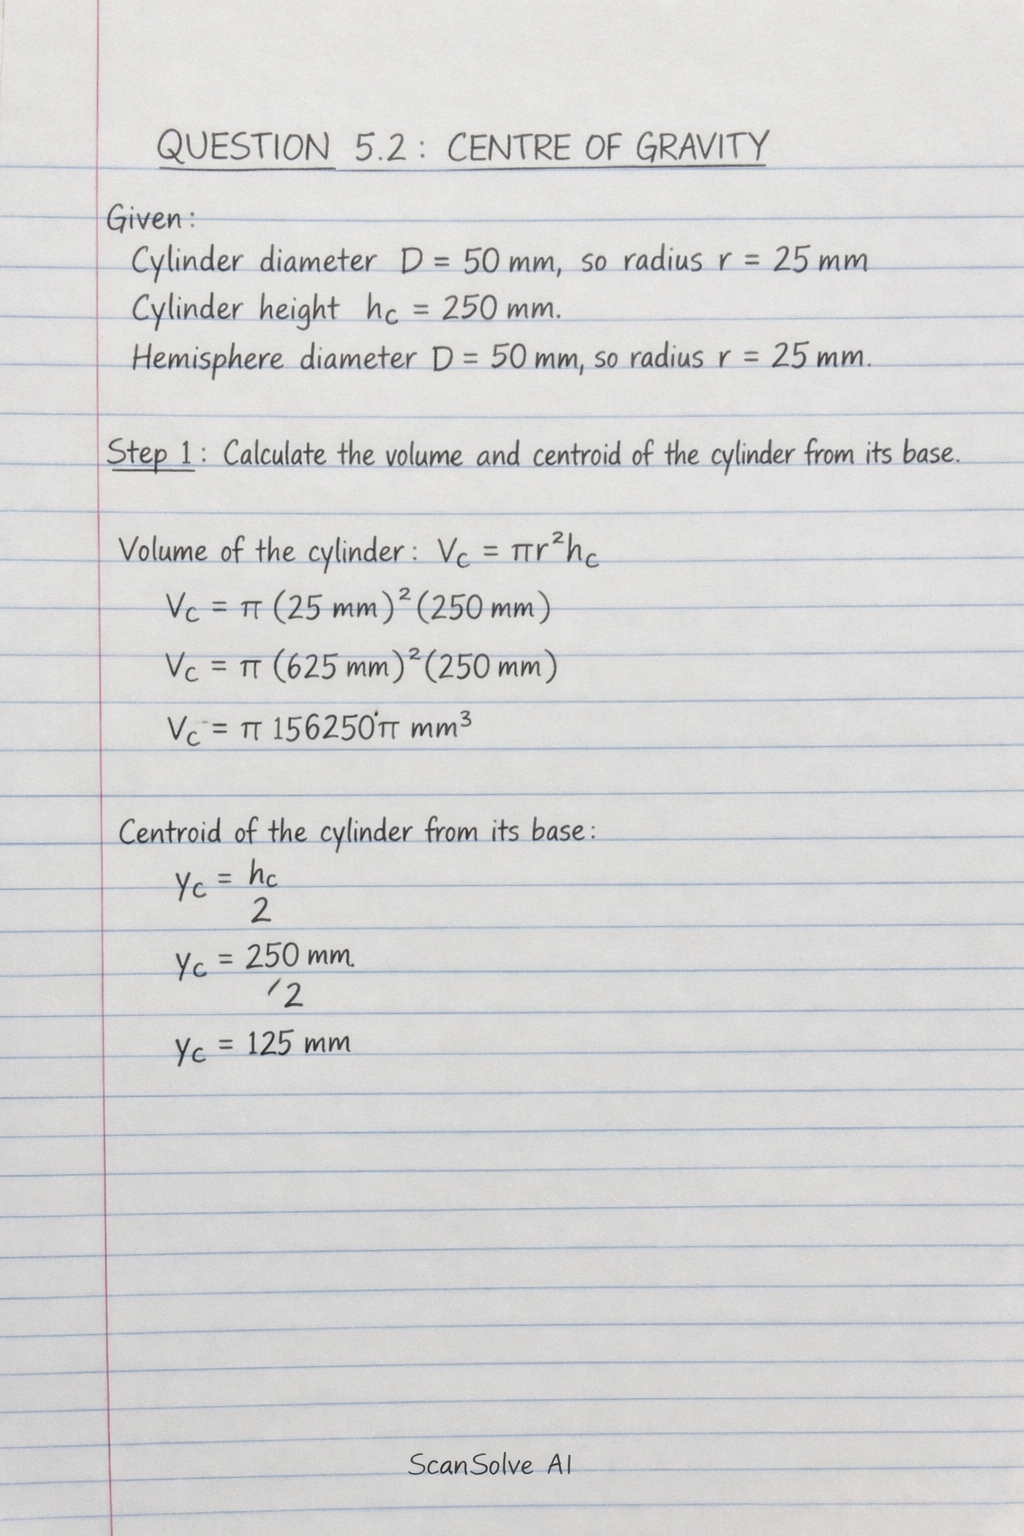 QUESTION 5.2: CENTRE OF GRAVITY
Given:
Cylinder diameter D = 50 mm, so radius r = 25 mm
Cylinder height h_c = 250 mm.
Hemisphere diameter D = 50 mm, so radius r = 25 mm.
Step 1: Calculate the volume and centroid of the cylinder from its base.
Volume of the cylinder: V_c = πr²h_c
V_c = π (25 mm)² (250 mm)
V_c = π (625 mm)² (250 mm)
V_c = π 156250π mm³
Centroid of the cylinder from its base:
y_c = h_c
2
y_c = 250 mm.
/2
y_c = 125 mm
ScanSolve AI